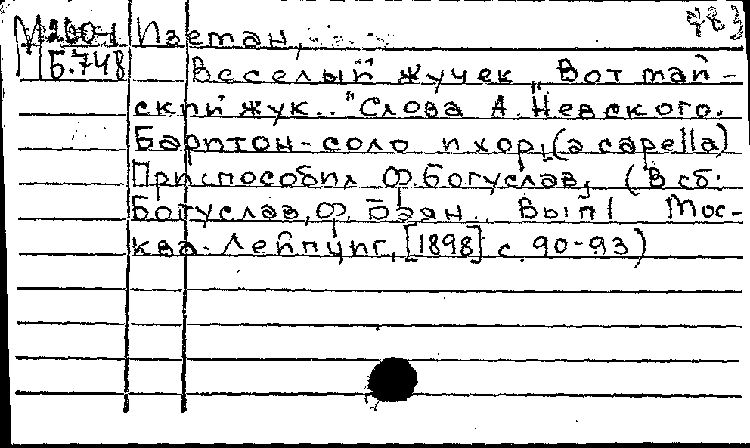 483
М 260-1 Изетан,
Б.748 Веселый жучек „Вот май-
ский жук.." Слова А. Невского.
Баритон-соло и хор, (a capella)
Приспособил Ф. Богуслав, (В сб:
Богуслав, Ф. Баян. Вып 1 Мос-
ква-Лейпциг, [1898] с. 90-93)